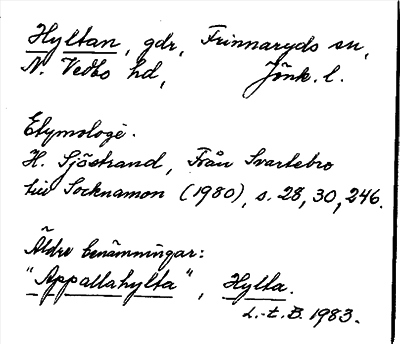 Hyltan, gdr, Frinnaryds sn,
N. Vedbo hd, Jönk. l.
Etymologi.
H. Sjöstrand, Från Svartebro
till Socknamon (1980), s. 28, 30, 246.
Äldre benämningar:
"Appallahylta", Hylta.
L.-t. B. 1983.